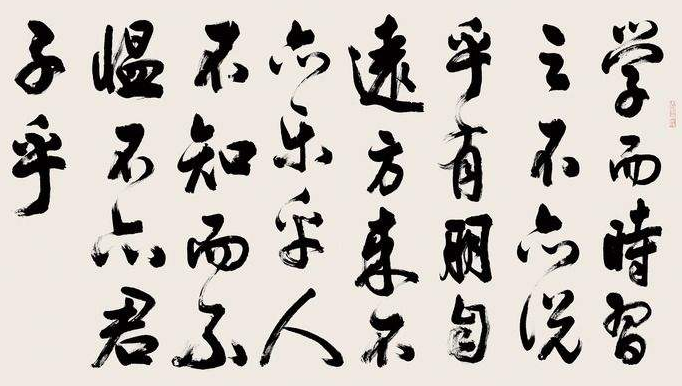 学而時習
之不亦说
乎有朋自
遠方来不
亦乐乎人
不知而不
愠不亦君
子乎